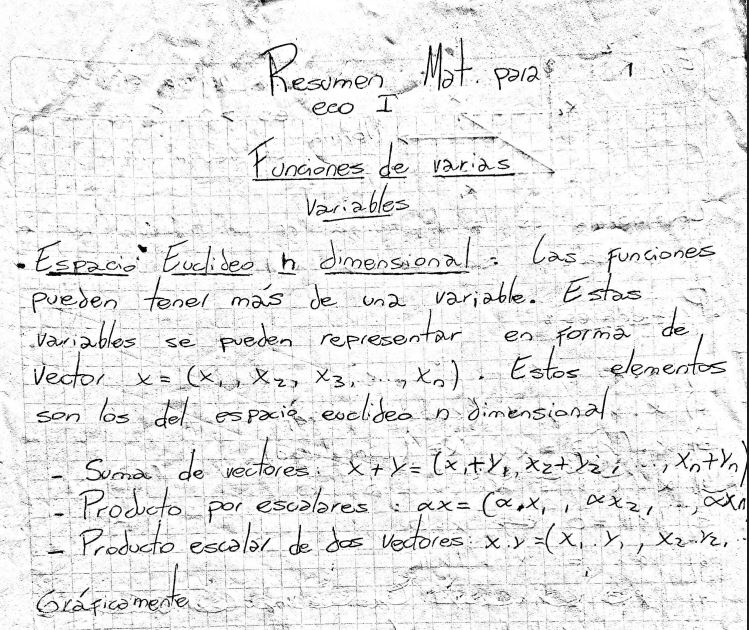 Resumen Mat. para 1
eco I
Funciones de varias
variables
• Espacio Euclideo n dimensional: Las funciones
pueden tener más de una variable. Estas
variables se pueden representar en forma de
vector x = (x₁, x₂, x₃, ..., xₙ). Estos elementos
son los del espacio euclideo n dimensional
- Suma de vectores: x + y = (x₁+y₁, x₂+y₂, ..., xₙ+yₙ)
- Producto por escalares: αx = (α.x₁, αx₂, ..., αxₙ
- Producto escalar de dos vectores: x.y = (x₁.y₁, x₂.y₂,
Gráficamente